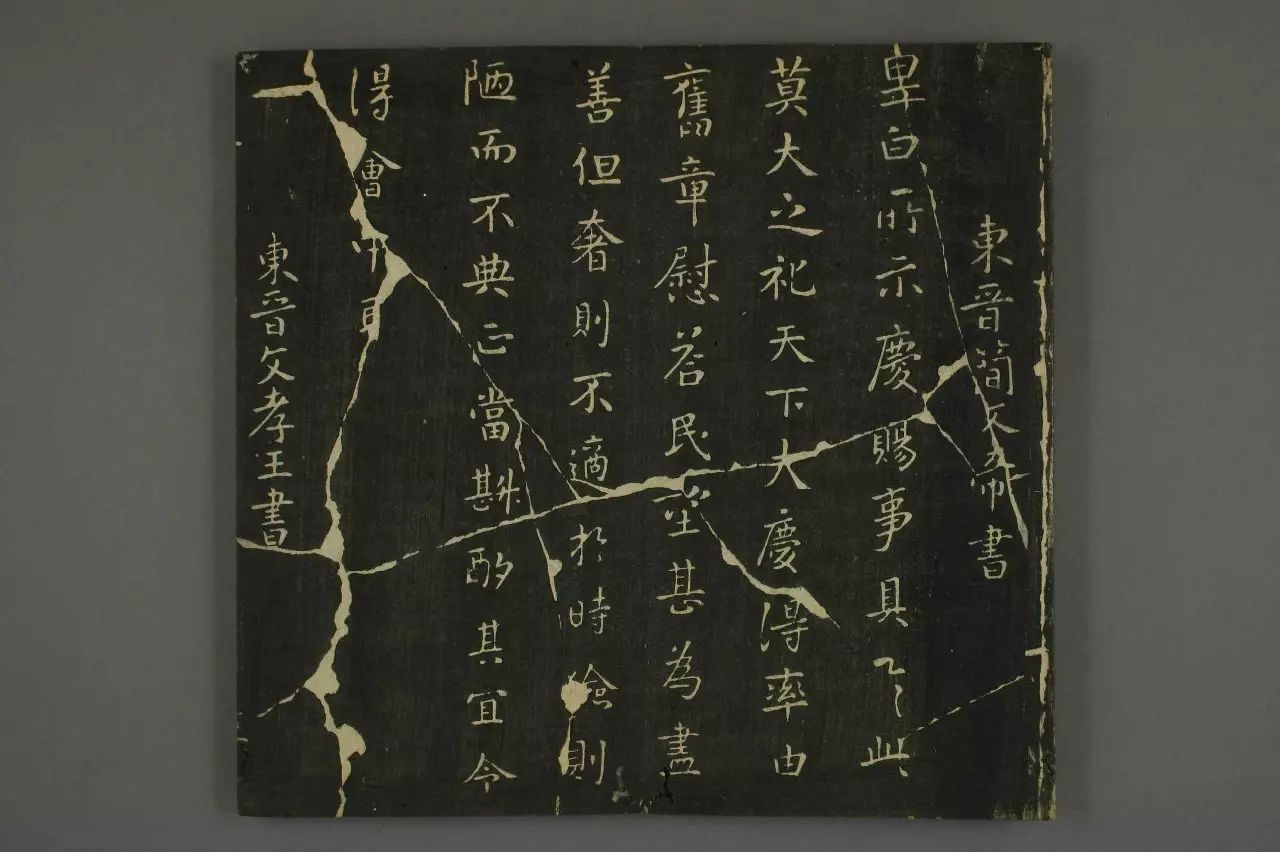 東晉簡文帝書
卑白所示慶賜事具之此
莫大之祀天下大慶得率由
舊章慰荅民望甚為盡
善但奢則不適於時儉則
陋而不典正當斟酌其宜令
得會中耳
東晉文孝王書